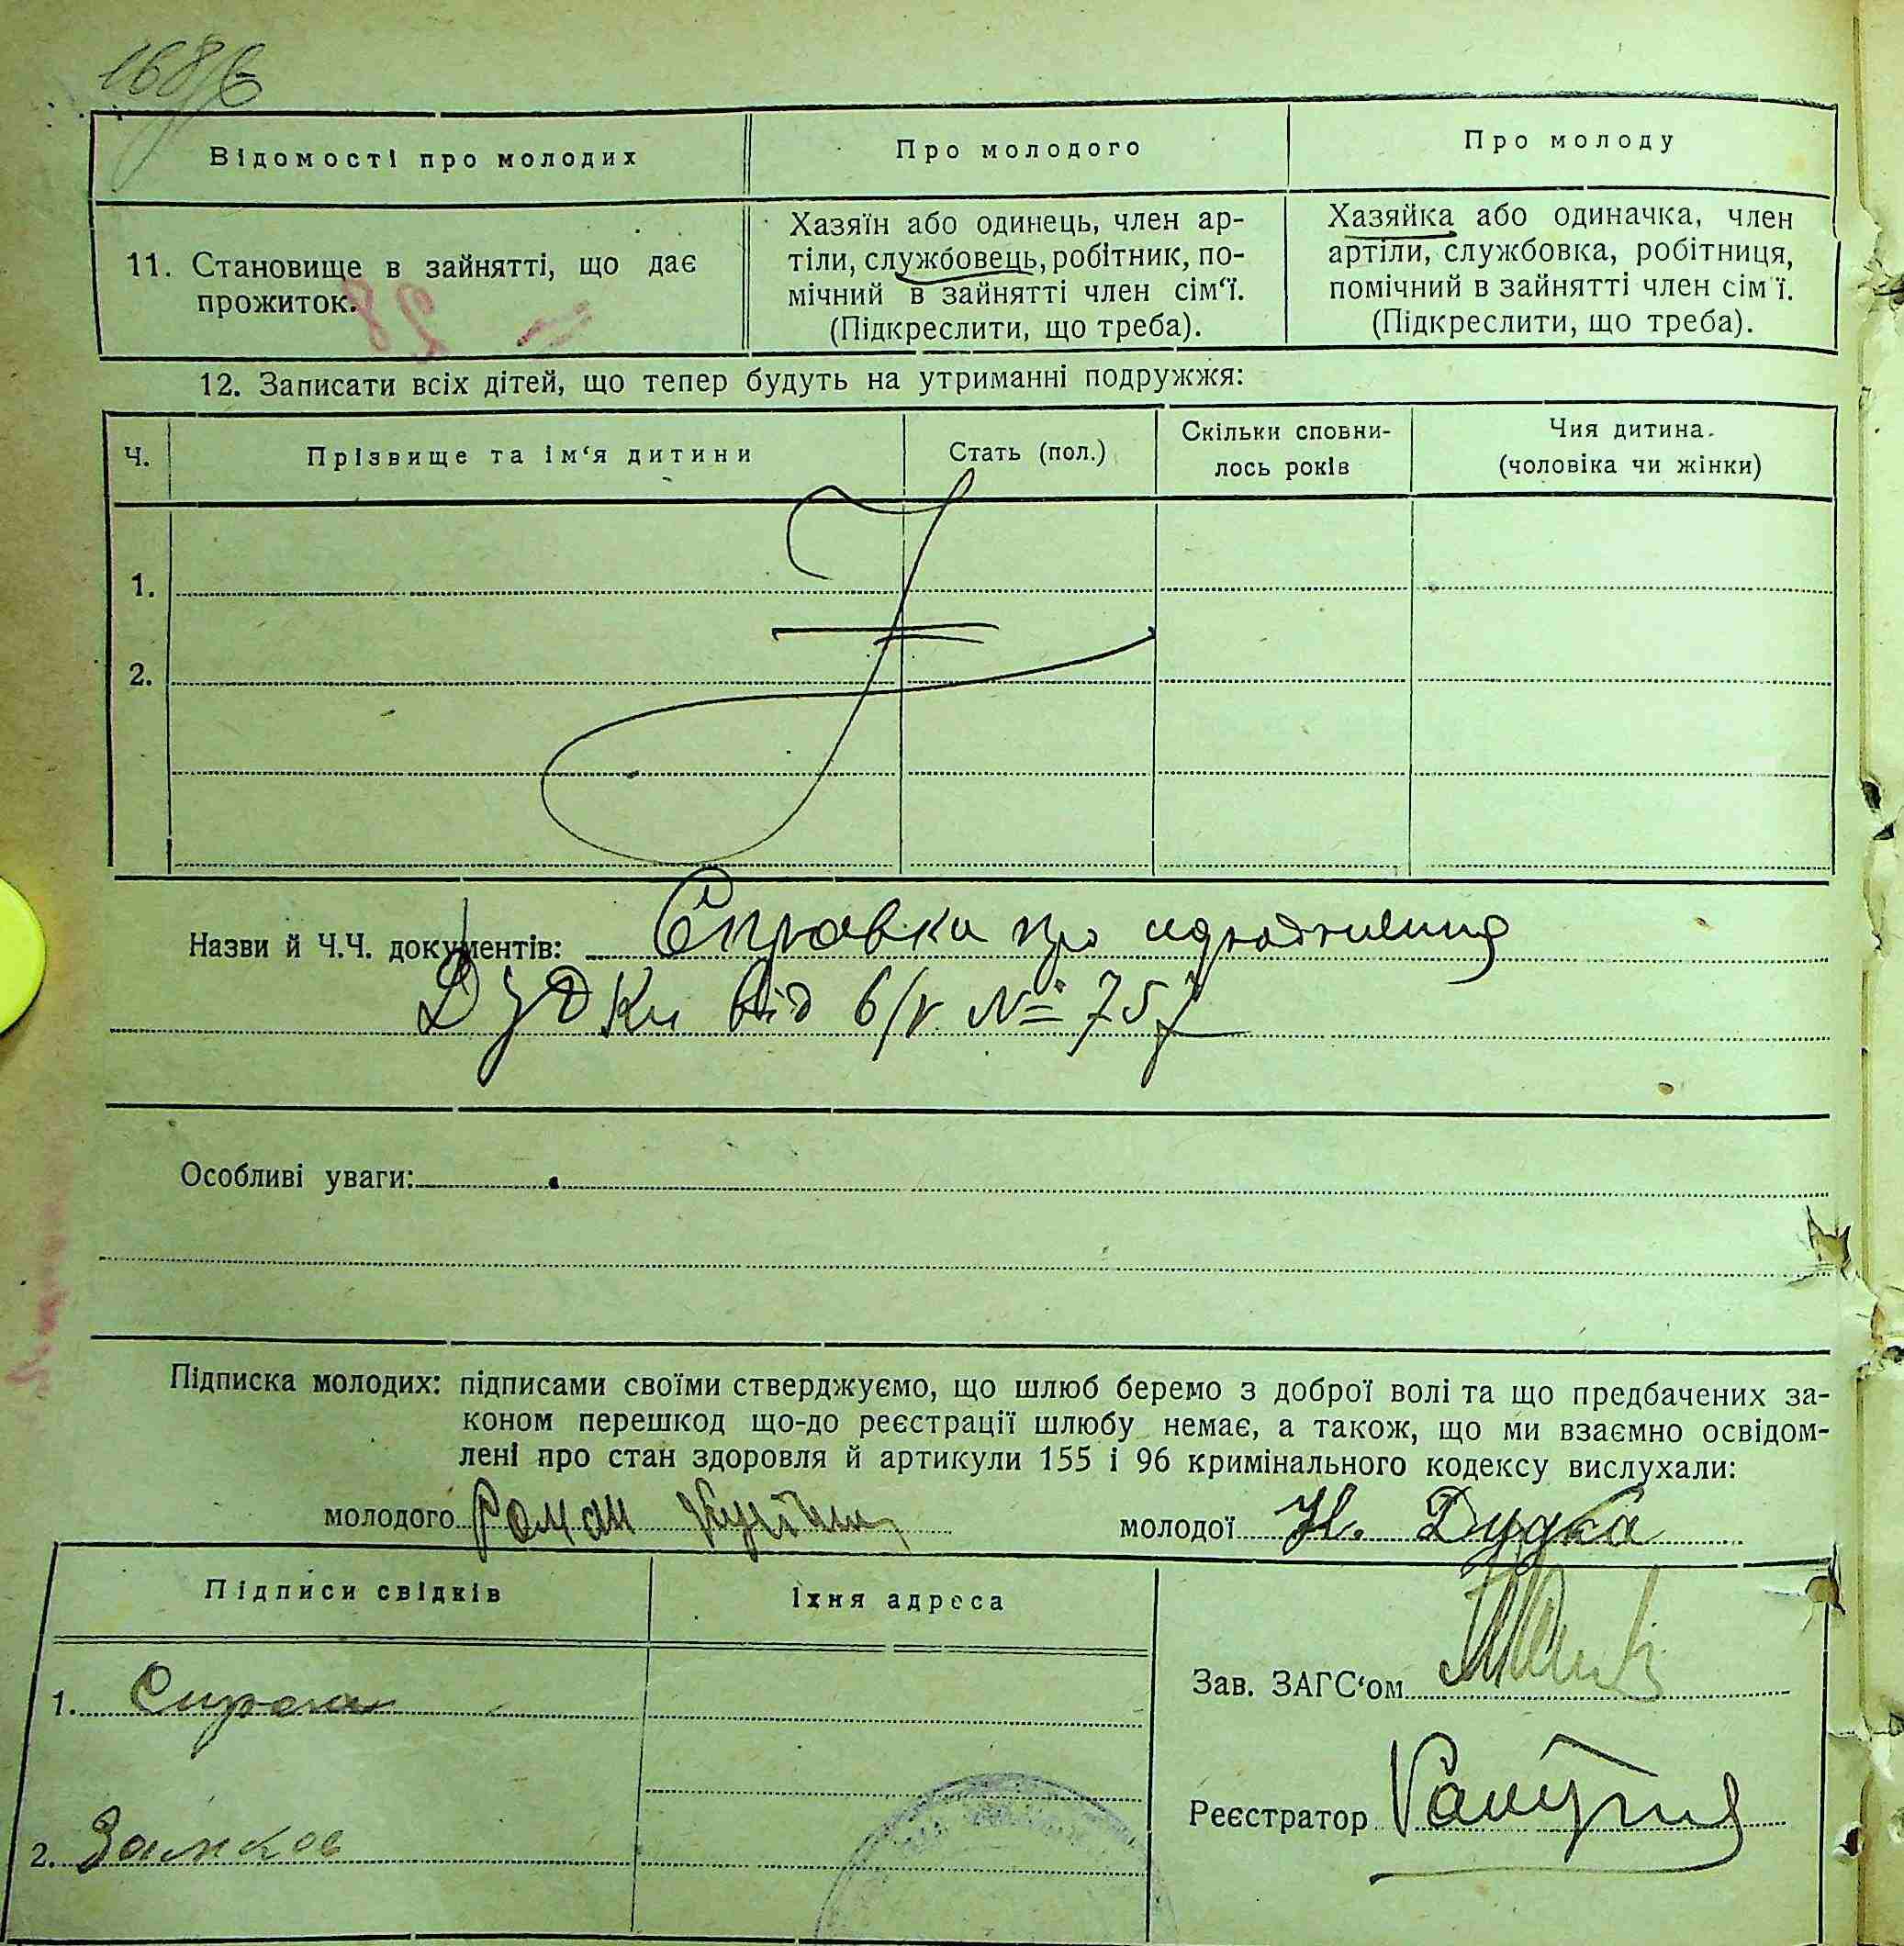 168/б
Відомості про молодих
Про молодого
Про молоду
11. Становище в зайнятті, що дає
прожиток.
Хазяїн або одинець, член ар-
тіли, службовець, робітник, по-
мічний в зайнятті член сім'ї.
(Підкреслити, що треба).
Хазяйка або одиначка, член
артіли, службовка, робітниця,
помічний в зайнятті член сім'ї.
(Підкреслити, що треба).
12. Записати всіх дітей, що тепер будуть на утриманні подружжя:
Ч.
Прізвище та ім'я дитини
Стать (пол.)
Скільки сповни-
лось років
Чия дитина.
(чоловіка чи жінки)
1.
2.
Назви й Ч.Ч. документів: Справка про
Дудки від 6/V № 757
Особливі уваги:
Підписка молодих: підписами своїми стверджуємо, що шлюб беремо з доброї волі та що предбачених за-
коном перешкод що-до реєстрації шлюбу немає, а також, що ми взаємно освідом-
лені про стан здоровля й артикули 155 і 96 кримінального кодексу вислухали:
молодого Роман
молодої Н. Дудка
Підписи свідків
Їхня адреса
1.
2. Замков
Зав. ЗАГС'ом
Реєстратор